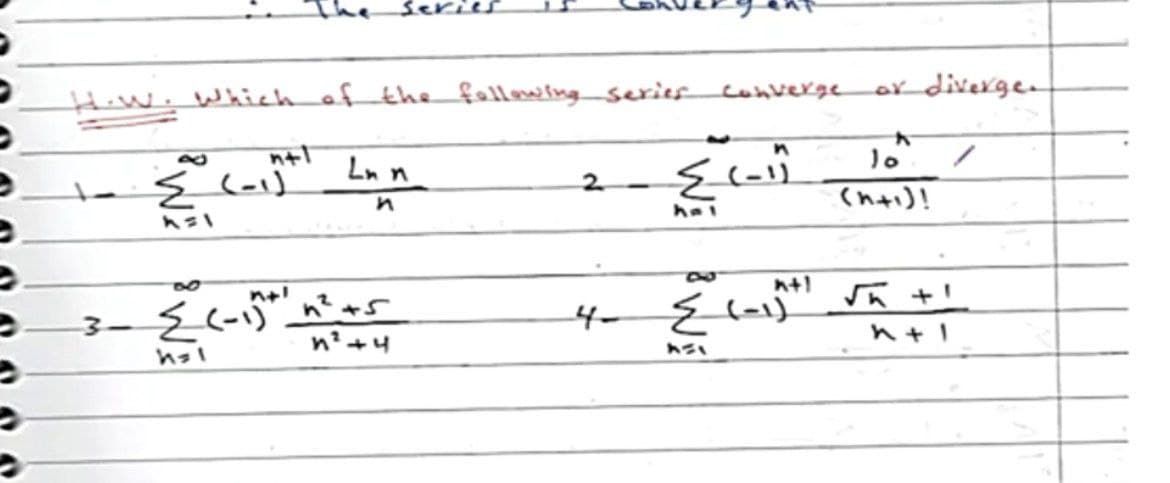 ∴ The series is convergent
H.W. Which of the following series converge or diverge.
1- ∞Σn=1 (-1)^(n+1) Ln n / n 2- ∞Σn=1 (-1)^n 10^n / (n+1)!
3- ∞Σn=1 (-1)^(n+1) n²+5 / n²+4 4- ∞Σn=1 (-1)^(n+1) √n +1 / n+1